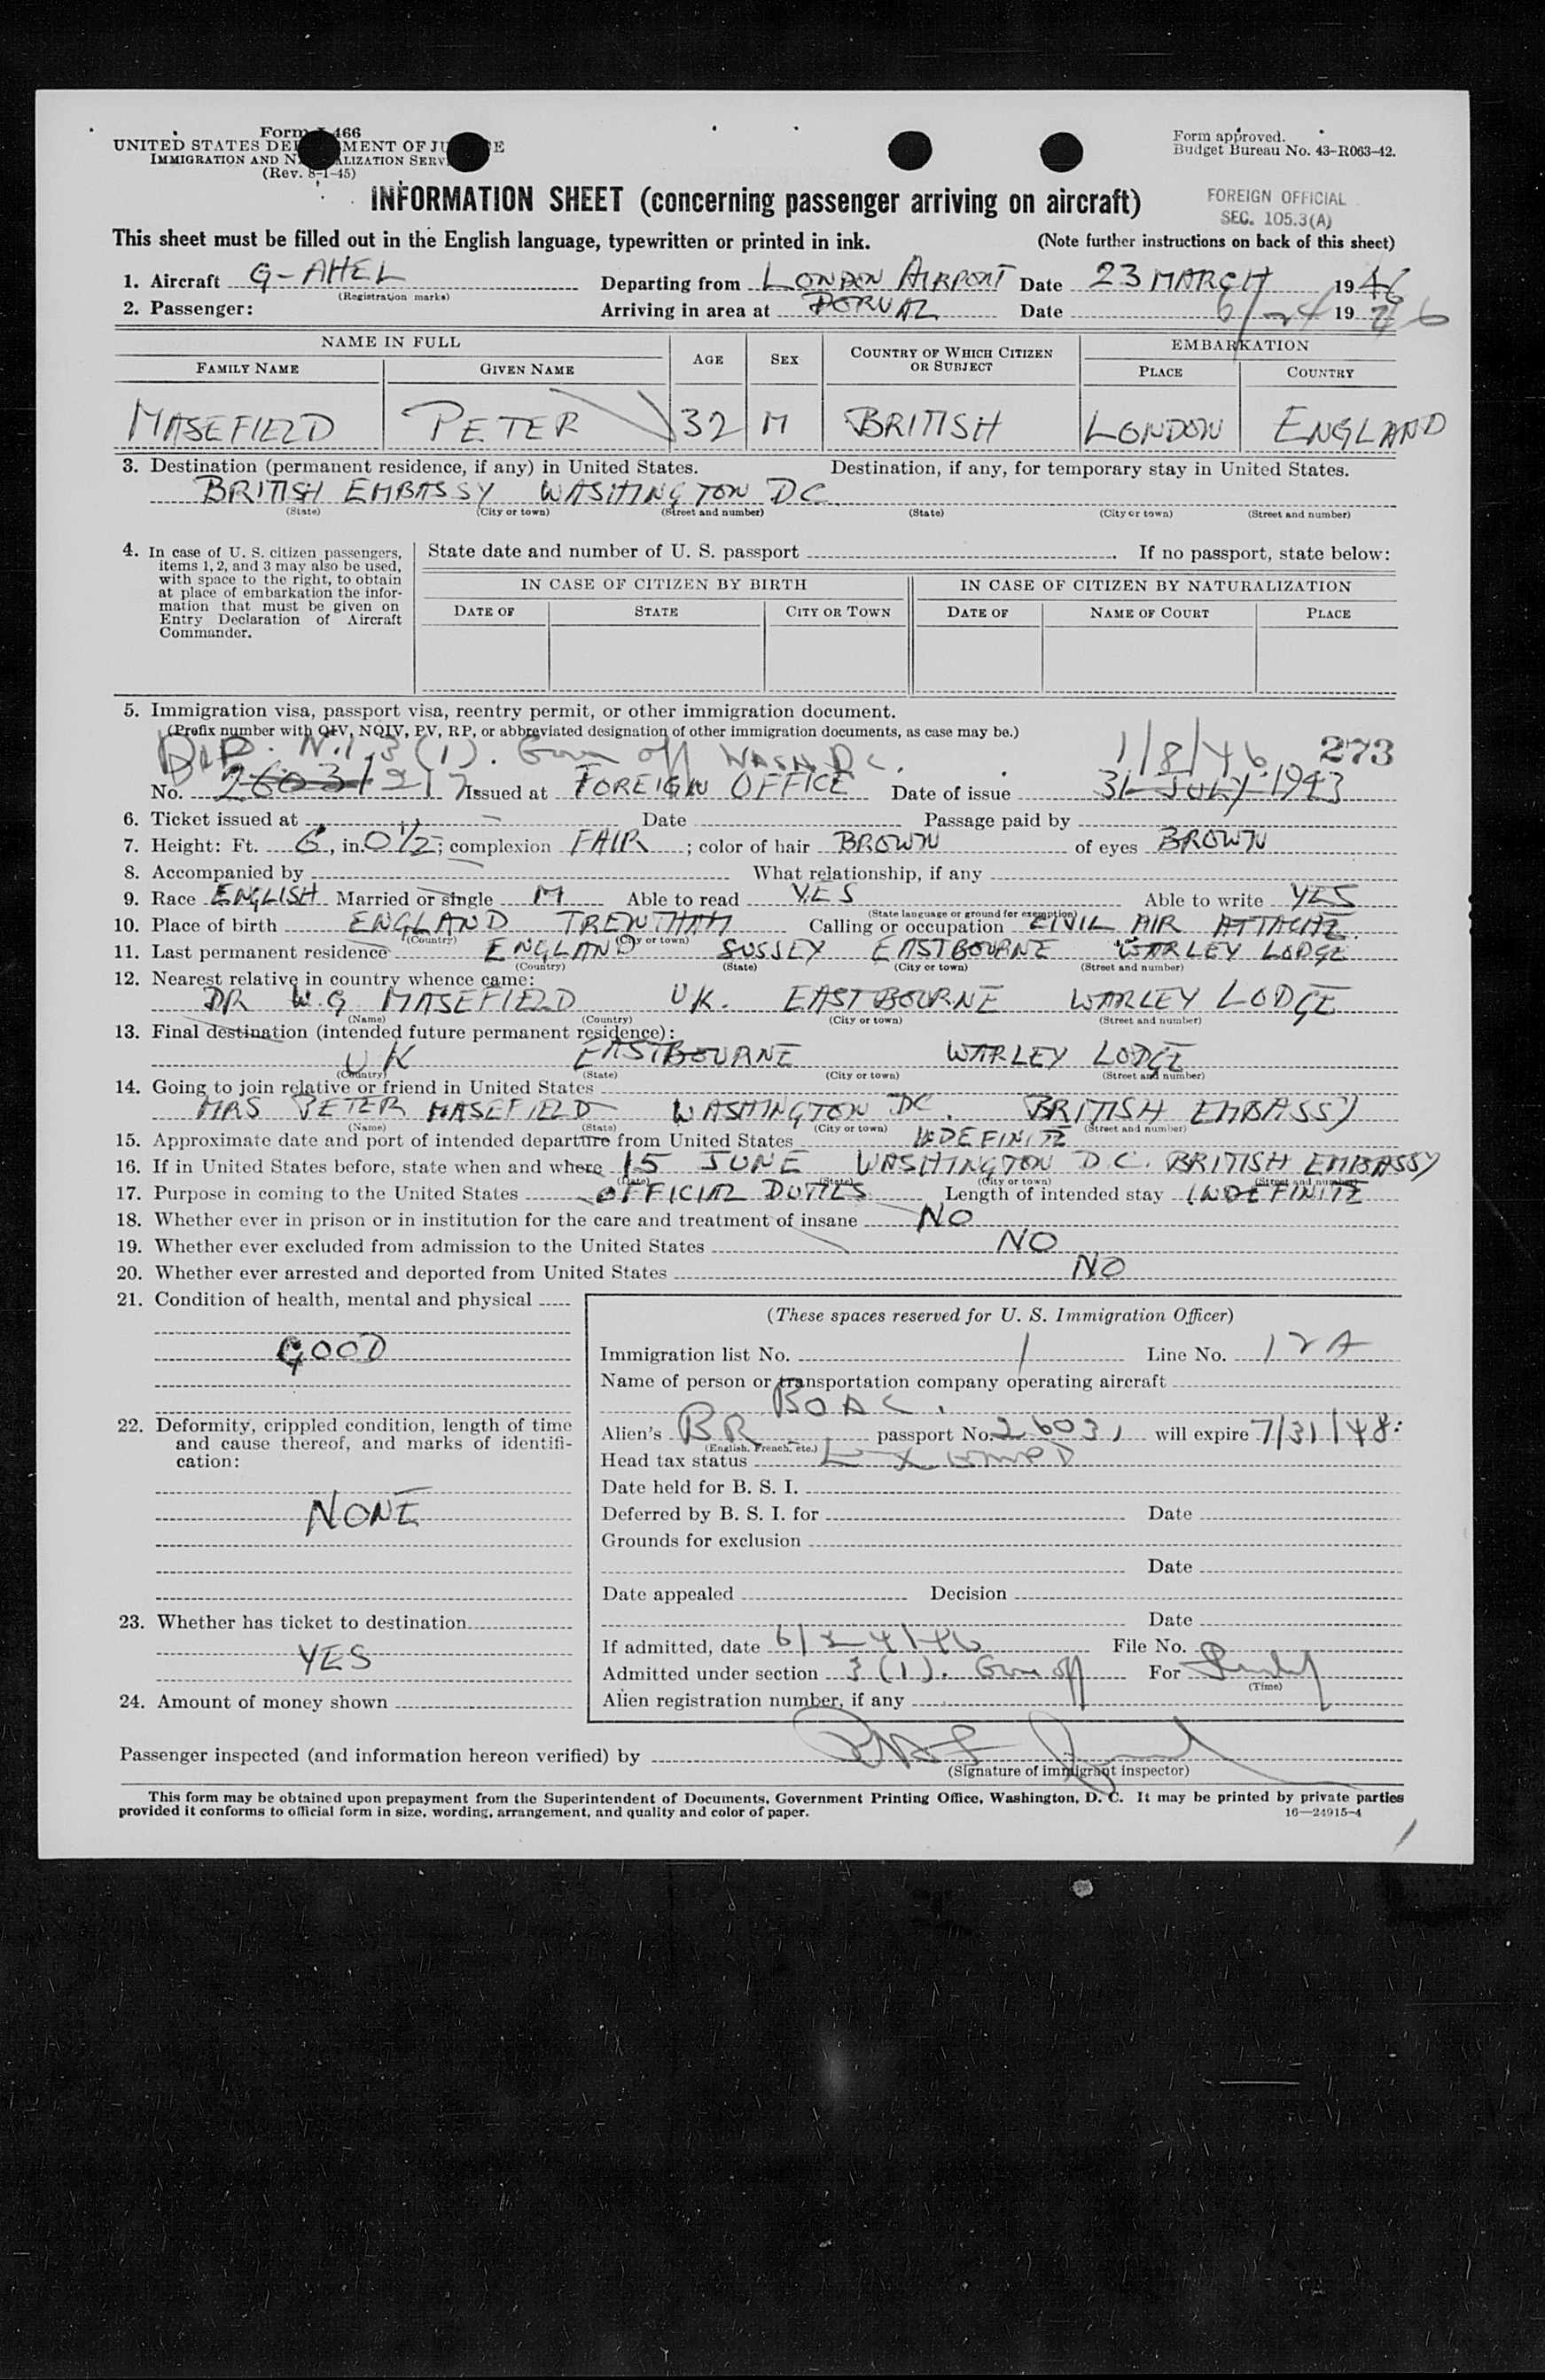 Form I-466
UNITED STATES DEPARTMENT OF JUSTICE
IMMIGRATION AND NATURALIZATION SERVICE
(Rev. 8-1-45)
Form approved.
Budget Bureau No. 43-R063-42.
INFORMATION SHEET (concerning passenger arriving on aircraft)
FOREIGN OFFICIAL
SEC. 105.3(A)
This sheet must be filled out in the English language, typewritten or printed in ink. (Note further instructions on back of this sheet)
1. Aircraft G-AHEL Departing from LONDON AIRPORT Date 23 MARCH 1946
(Registration marks)
2. Passenger: Arriving in area at DORVAL Date 6/24 1946
NAME IN FULL AGE SEX COUNTRY OF WHICH CITIZEN OR SUBJECT EMBARKATION
FAMILY NAME GIVEN NAME PLACE COUNTRY
MASEFIELD PETER 32 M BRITISH LONDON ENGLAND
3. Destination (permanent residence, if any) in United States. Destination, if any, for temporary stay in United States.
BRITISH EMBASSY WASHINGTON DC
(State) (City or town) (Street and number) (State) (City or town) (Street and number)
4. In case of U. S. citizen passengers, items 1, 2, and 3 may also be used, with space to the right, to obtain at place of embarkation the information that must be given on Entry Declaration of Aircraft Commander.
State date and number of U. S. passport . If no passport, state below:
IN CASE OF CITIZEN BY BIRTH IN CASE OF CITIZEN BY NATURALIZATION
DATE OF STATE CITY OR TOWN DATE OF NAME OF COURT PLACE
5. Immigration visa, passport visa, reentry permit, or other immigration document.
(Prefix number with QIV, NQIV, PV, RP, or abbreviated designation of other immigration documents, as case may be.)
DIP. 3(1). Gov off WASH DC. 1/8/46 273
No. 26031 217 Issued at FOREIGN OFFICE Date of issue 31 JULY 1943
6. Ticket issued at — Date Passage paid by
7. Height: Ft. 6, in. 0 1/2; complexion FAIR; color of hair BROWN of eyes BROWN
8. Accompanied by — What relationship, if any
9. Race ENGLISH Married or single M Able to read YES Able to write YES
(State language or ground for exemption)
10. Place of birth ENGLAND TRENTHAM Calling or occupation CIVIL AIR ATTACHE
(Country) (City or town)
11. Last permanent residence ENGLAND SUSSEX EASTBOURNE WARLEY LODGE
(Country) (State) (City or town) (Street and number)
12. Nearest relative in country whence came:
DR W.G MASEFIELD UK. EASTBOURNE WARLEY LODGE
(Name) (Country) (City or town) (Street and number)
13. Final destination (intended future permanent residence):
UK EASTBOURNE WARLEY LODGE
(Country) (State) (City or town) (Street and number)
14. Going to join relative or friend in United States
MRS PETER MASEFIELD WASHINGTON DC. BRITISH EMBASSY
(Name) (State) (City or town) (Street and number)
15. Approximate date and port of intended departure from United States INDEFINITE
16. If in United States before, state when and where 15 JUNE WASHINGTON D.C. BRITISH EMBASSY
(Date) (State) (City or town) (Street and number)
17. Purpose in coming to the United States OFFICIAL DUTIES Length of intended stay INDEFINITE
18. Whether ever in prison or in institution for the care and treatment of insane NO
19. Whether ever excluded from admission to the United States NO
20. Whether ever arrested and deported from United States NO
21. Condition of health, mental and physical
GOOD
22. Deformity, crippled condition, length of time and cause thereof, and marks of identification:
NONE
23. Whether has ticket to destination
YES
24. Amount of money shown
(These spaces reserved for U. S. Immigration Officer)
Immigration list No. 1 Line No. 12A
Name of person or transportation company operating aircraft
BOAC.
Alien's BR passport No. 26031 will expire 7/31/48.
(English, French, etc.)
Head tax status
Date held for B. S. I.
Deferred by B. S. I. for Date
Grounds for exclusion
Date
Date appealed Decision
Date
If admitted, date 6/24/46 File No.
Admitted under section 3(1). Gov off For
(Time)
Alien registration number, if any
Passenger inspected (and information hereon verified) by
(Signature of immigrant inspector)
This form may be obtained upon prepayment from the Superintendent of Documents, Government Printing Office, Washington, D. C. It may be printed by private parties
provided it conforms to official form in size, wording, arrangement, and quality and color of paper. 16—24915-4